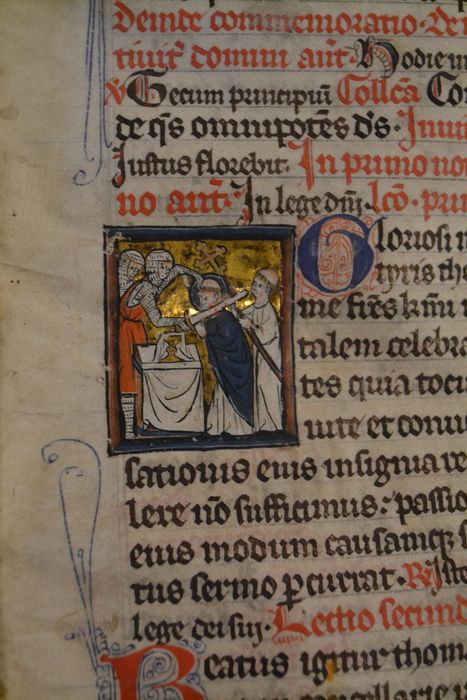 Deinde commemoratio · de
tiuit͛ domini ant͛· Hodie
℣ Tecum principiū Collc̄a Co
de q̄s omnipotēs d̄s · Inuit
Justus florebit. In primo no
no ant͛· In lege dn̄i· lc̄o · pri
Gloriosi
tyris th
me fr̄es kr̄mi
talem celebra
tes quia tocu
uite et conu
sationis eius insignia re
lere nō sufficimus: passio
eius modum causamq;
tus sermo ꝑcurrat· ℟
lege dei sui· Lectio secund
Beatus igitur thom
cancellarie